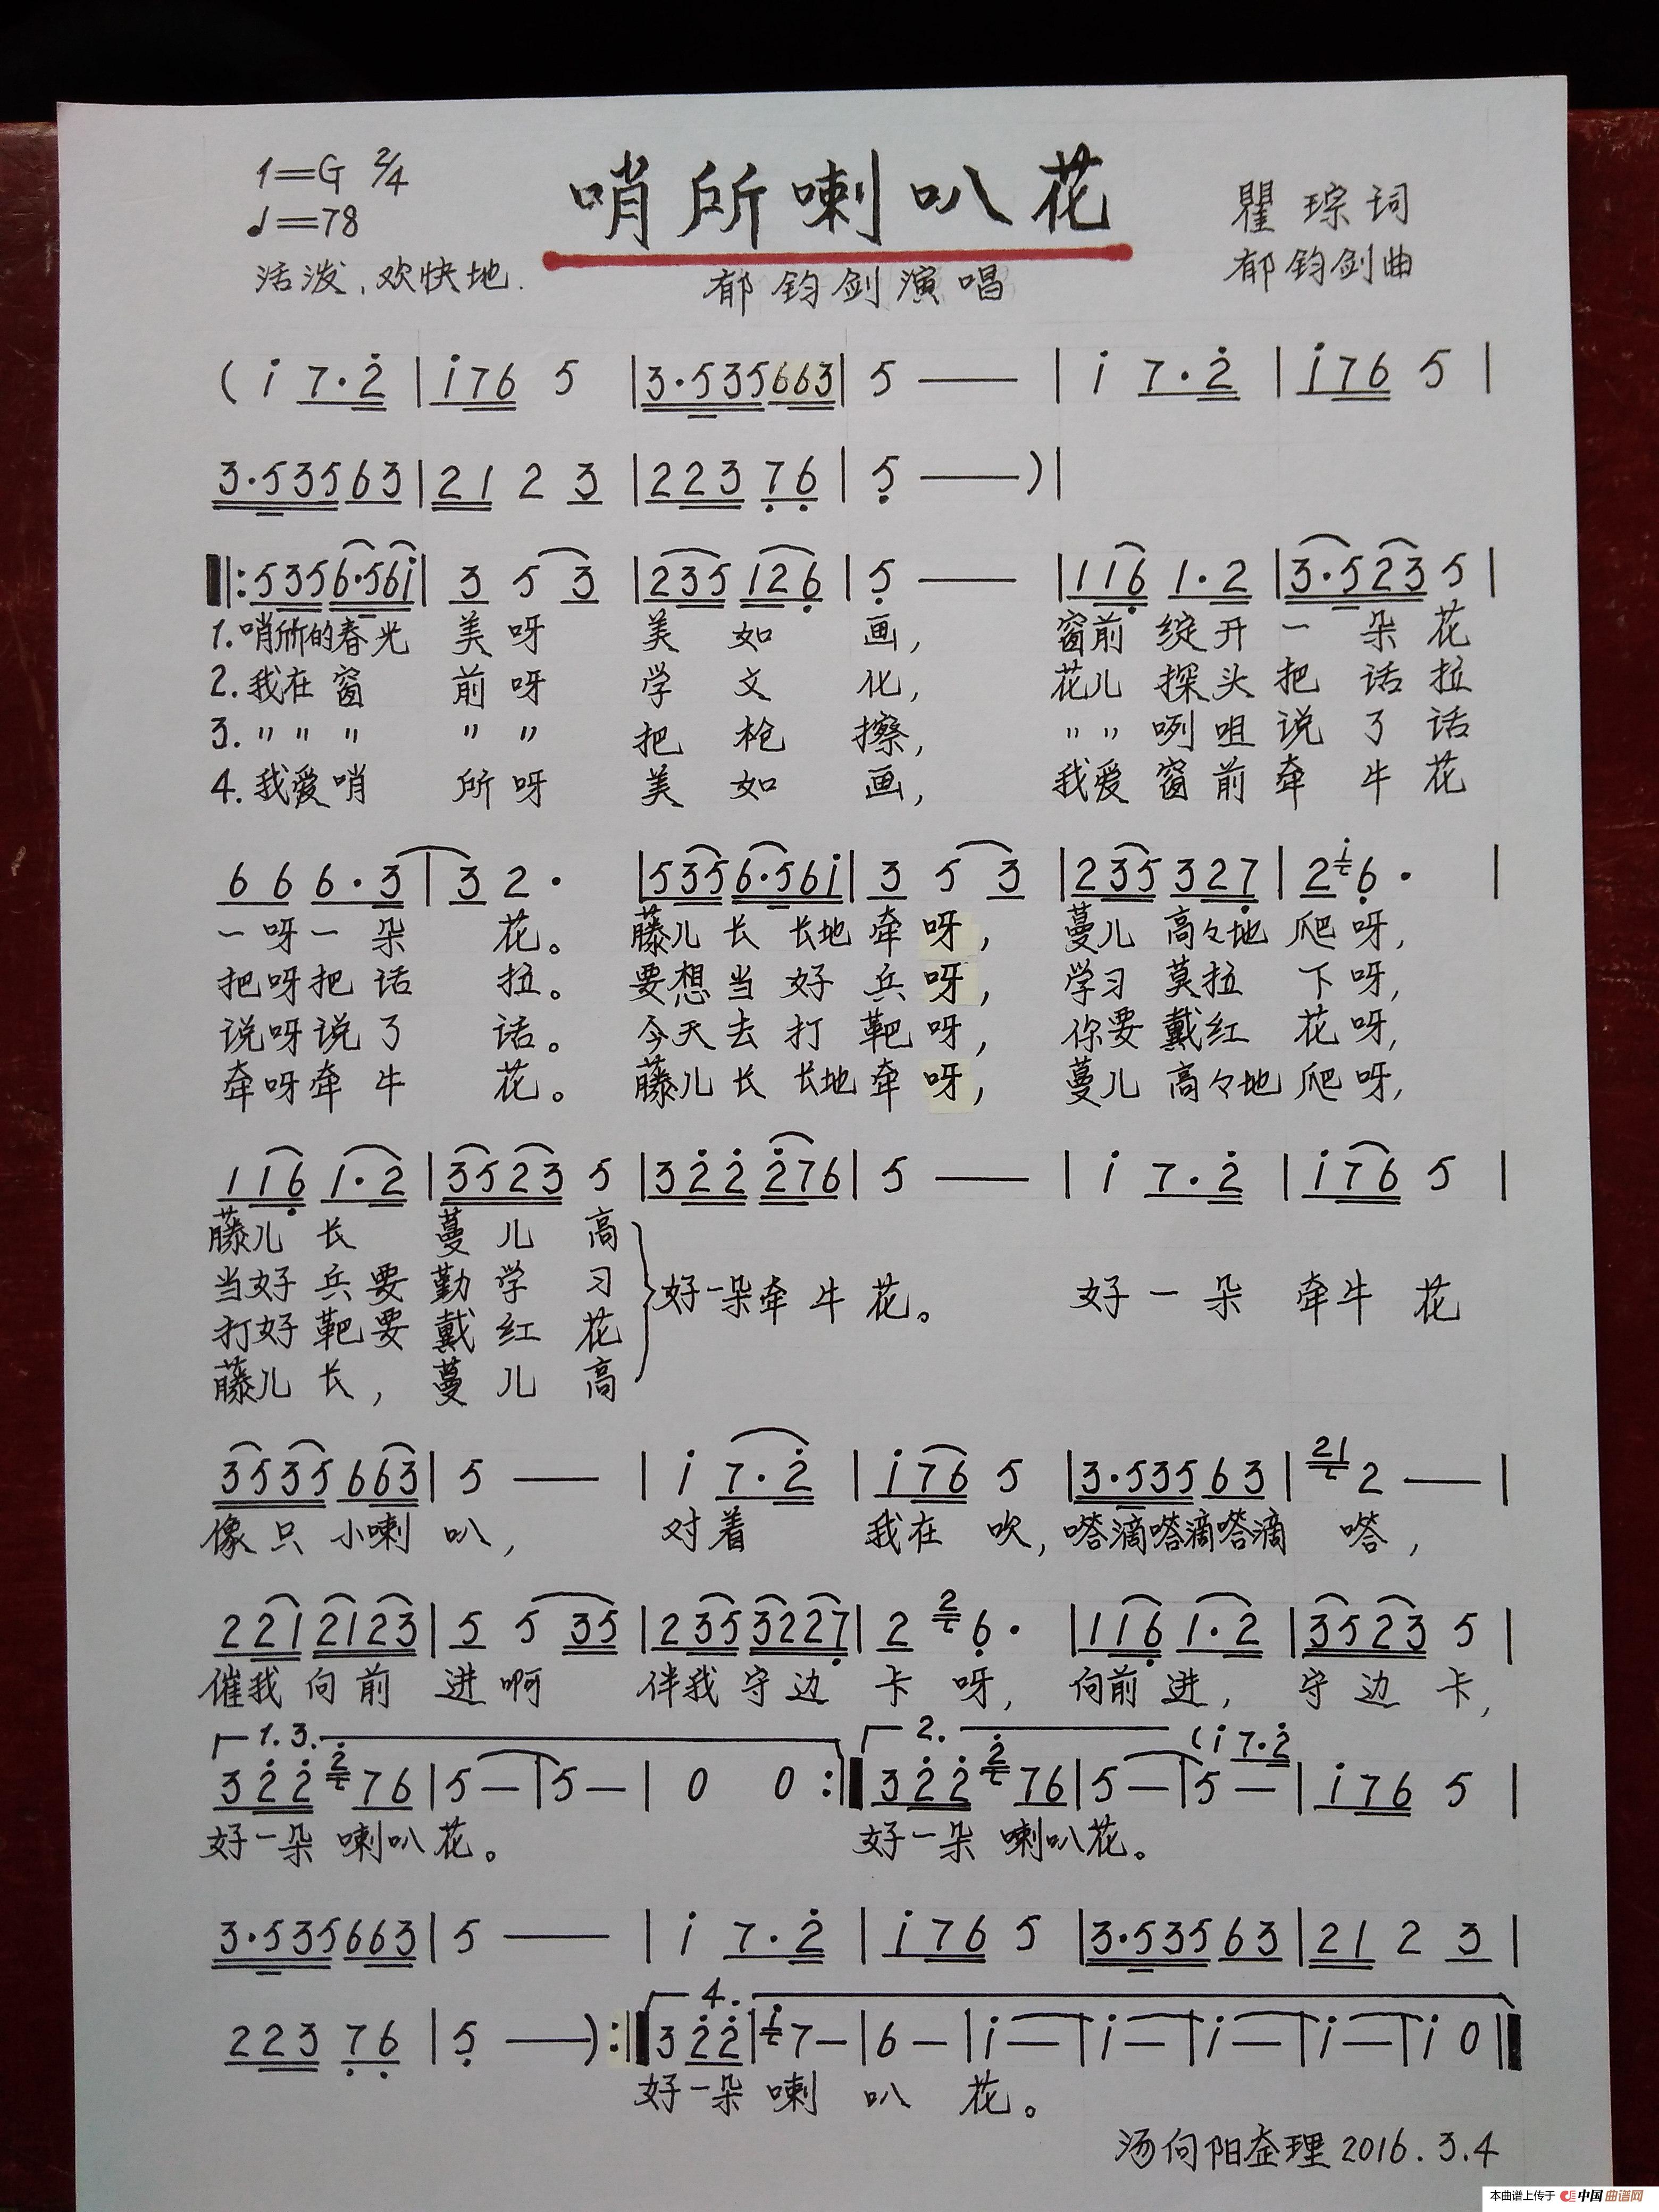 1=G 2/4
♩=78
活泼、欢快地.
哨所喇叭花
郁钧剑演唱
瞿琮词
郁钧剑曲
( i̇ 7·2̇ | i̇76 5 | 3·535663 | 5 — | i̇ 7·2̇ | i̇76 5 |
3·53563 | 21 2 3 | 223 7̣6̣ | 5̣ — ) |
‖: 5356·56i̇ | 3 5 3 | 235 126̣ | 5̣ — | 116̣ 1·2 | 3·523 5 |
1. 哨所的春光 美呀 美如画, 窗前绽开一朵花
2. 我在窗 前呀 学文化, 花儿探头把话拉
3. 〃〃〃 〃〃 把枪擦, 〃〃咧咀说了话
4. 我爱哨 所呀 美如画, 我爱窗前牵牛花
6 6 6·3 | 3 2· | 5356·56i̇ | 3 5 3 | 235 327̣ | 2 i̇ 6̣· |
一呀一朵 花。 藤儿长长地牵呀, 蔓儿高々地爬呀,
把呀把话 拉。 要想当好兵呀, 学习莫拉下呀,
说呀说了 话。 今天去打靶呀, 你要戴红花呀,
牵呀牵牛 花。 藤儿长长地牵呀, 蔓儿高々地爬呀,
116̣ 1·2 | 3523 5 | 32̇2̇ 2̇76 | 5 — | i̇ 7·2̇ | i̇76 5 |
藤儿长 蔓儿高
当好兵要勤学习
打好靶要戴红花
藤儿长, 蔓儿高
好一朵牵牛花。 好一朵牵牛花
3535 663 | 5 — | i̇ 7·2̇ | i̇76 5 | 3·53563 | 21 2 — |
像只小喇叭, 对着我在吹, 嗒滴嗒滴嗒滴 嗒,
221 2123 | 5 5 35 | 235 3227̣ | 2 2 6̣· | 116̣ 1·2 | 3523 5 |
催我向前进啊 伴我守边卡呀, 向前进, 守边卡,
1. 3. 2. ( i̇ 7·2̇
32̇2̇ 2̇ 76 | 5 — | 5 — | 0 0 :‖ 32̇2̇ 2̇ 76 | 5 — | 5 — | i̇76 5 |
好一朵喇叭花。 好一朵喇叭花。
3·535663 | 5 — | i̇ 7·2̇ | i̇76 5 | 3·53563 | 21 2 3 |
4.
223 7̣6̣ | 5̣ — ) :‖ 32̇2̇ | i̇ 7 — | 6 — | i̇ — | i̇ — | i̇ — | i̇ — | i̇ 0 ‖
好一朵喇叭花。
汤向阳整理2016.3.4
本曲谱上传于 中国曲谱网